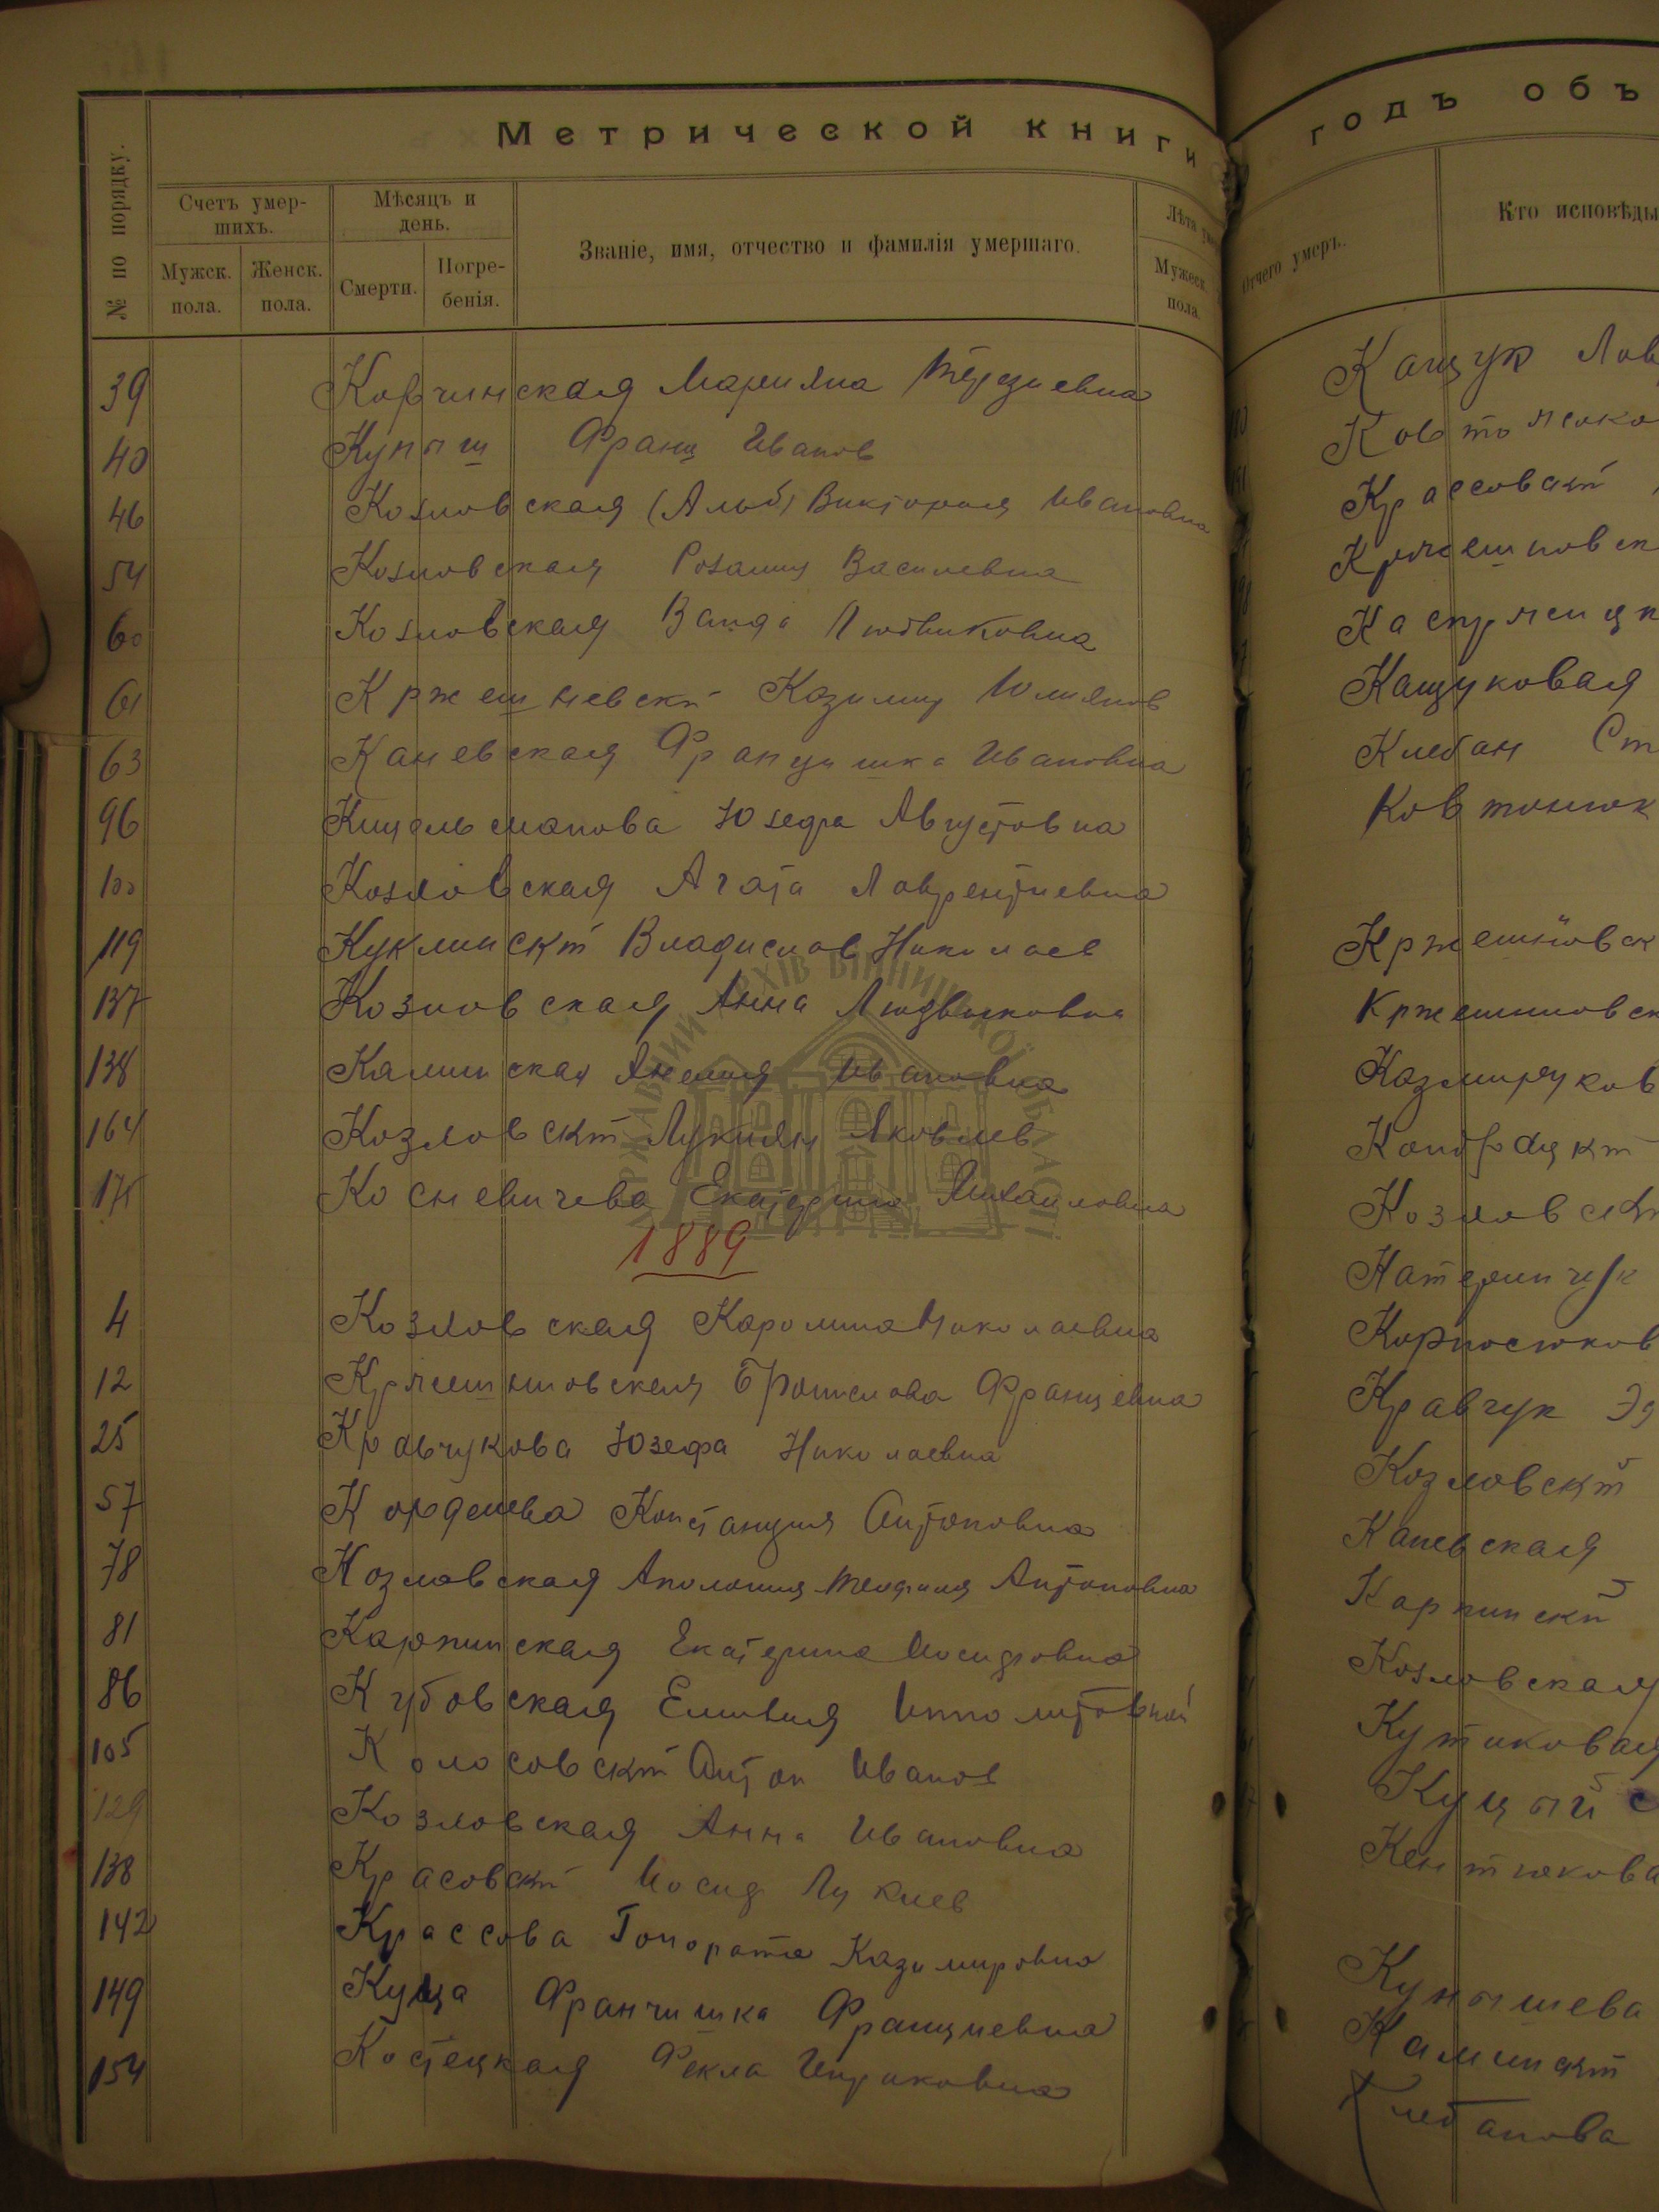 Метрической книги
№ по порядку.
Счетъ умер-
шихъ.
Мужск.
пола.
Женск.
пола.
Мѣсяцъ и
день.
Смерти.
Погре-
бенія.
Званіе, имя, отчество и фамилія умершаго.
Лѣта
Мужеск.
пола.
39 Корчинская Марияна
40 Куныш Франц Иванов
46 Козловская (Альб) Виктория Ивановна
54 Козловская Розалия Василевна
60 Козловская Ванда Людвиковна
61 Кржешневскій Казимир Юлианов
63 Каневская Францишка Ивановна
96 Юзефа Августовна
100 Козловская Агата Лаврентиевна
119 Куклинскій Владислав Николаев
137 Козловская Анна Людвиковна
138 Калинская Анеля Ивановна
164 Козловскій Лукиян Яковлев
Косневичева Екатерина Михаиловна
1889
4 Козловская Каролина Николаевна
12 Кржешниовская Бронислова Францевна
25 Кравчукова Юзефа Николаевна
57 Констанция Антоновна
78 Козловская Аполония Теофиля Антоновна
81 Карпинская Екатерина Иосифовна
86 Кубовская Емилия
105 Колосовскій Антон Иванов
129 Козловская Анна Ивановна
138 Красовскій Иосиф Лукиев
142 Крассова Гонората Казимировна
149 Куца Франчишка Францевна
154 Костецкая Фекла Индриковна
годъ объ
Отчего умеръ.
Кто исповѣды
Кащук Лав
Крассовскій
Кащуковая
Клебан Ст
Ковтонюк
Кржешниовск
Кржешниовск
Казмируков
Козловскій
Катеринчук
Корпосюков
Кравчук Эд
Козловскій
Каневская
Карпинскій
Козловская
Кутиковая
Куцый С
Кентюкова
Кунышева
Каминскій
Клебанова
ДЕРЖАВНИЙ АРХІВ ВІННИЦЬКОЇ ОБЛАСТІ